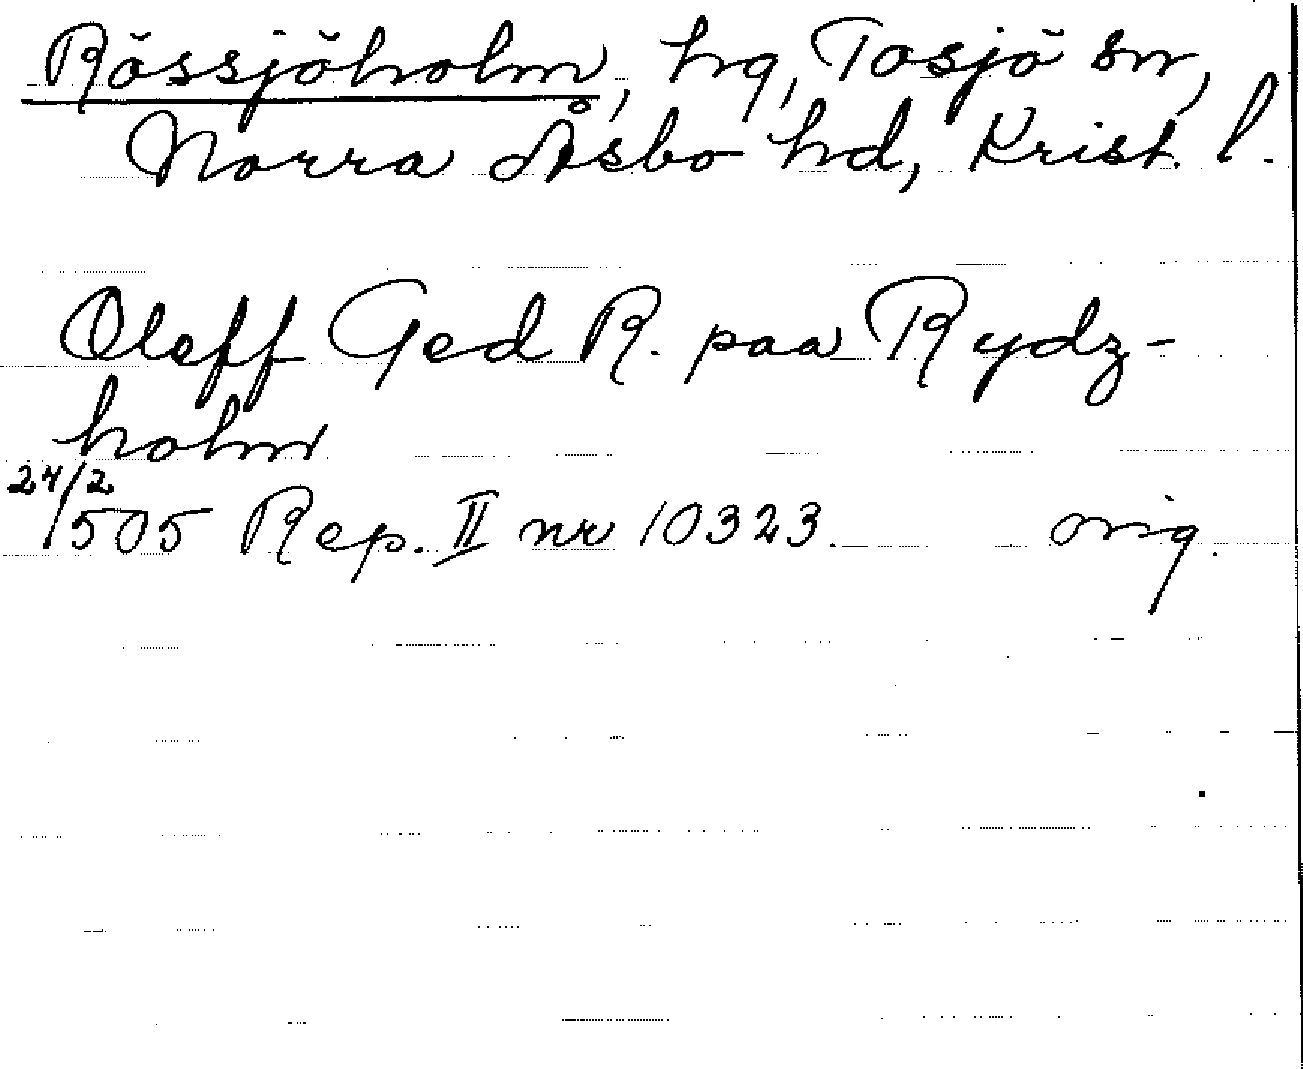 Rössjöholm, hg, Tosjö sn,
Norra Åsbo hd, Krist. l.
Oleff Ged R. paa Rydz-
holm
24/2
1505 Rep. II nr 10323. orig.